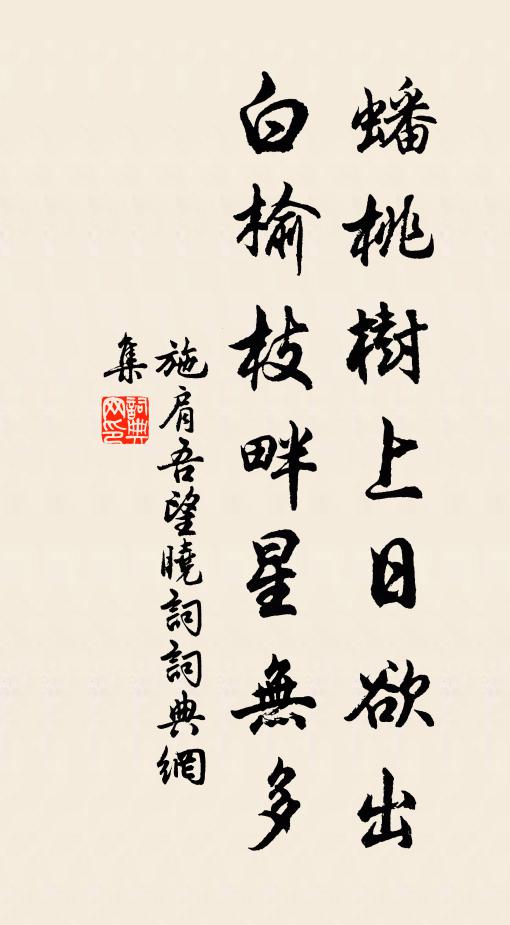 蟠桃樹上日欲出
白榆枝畔星無多
施肩吾望曉詞詞典網
集
詞典
网印